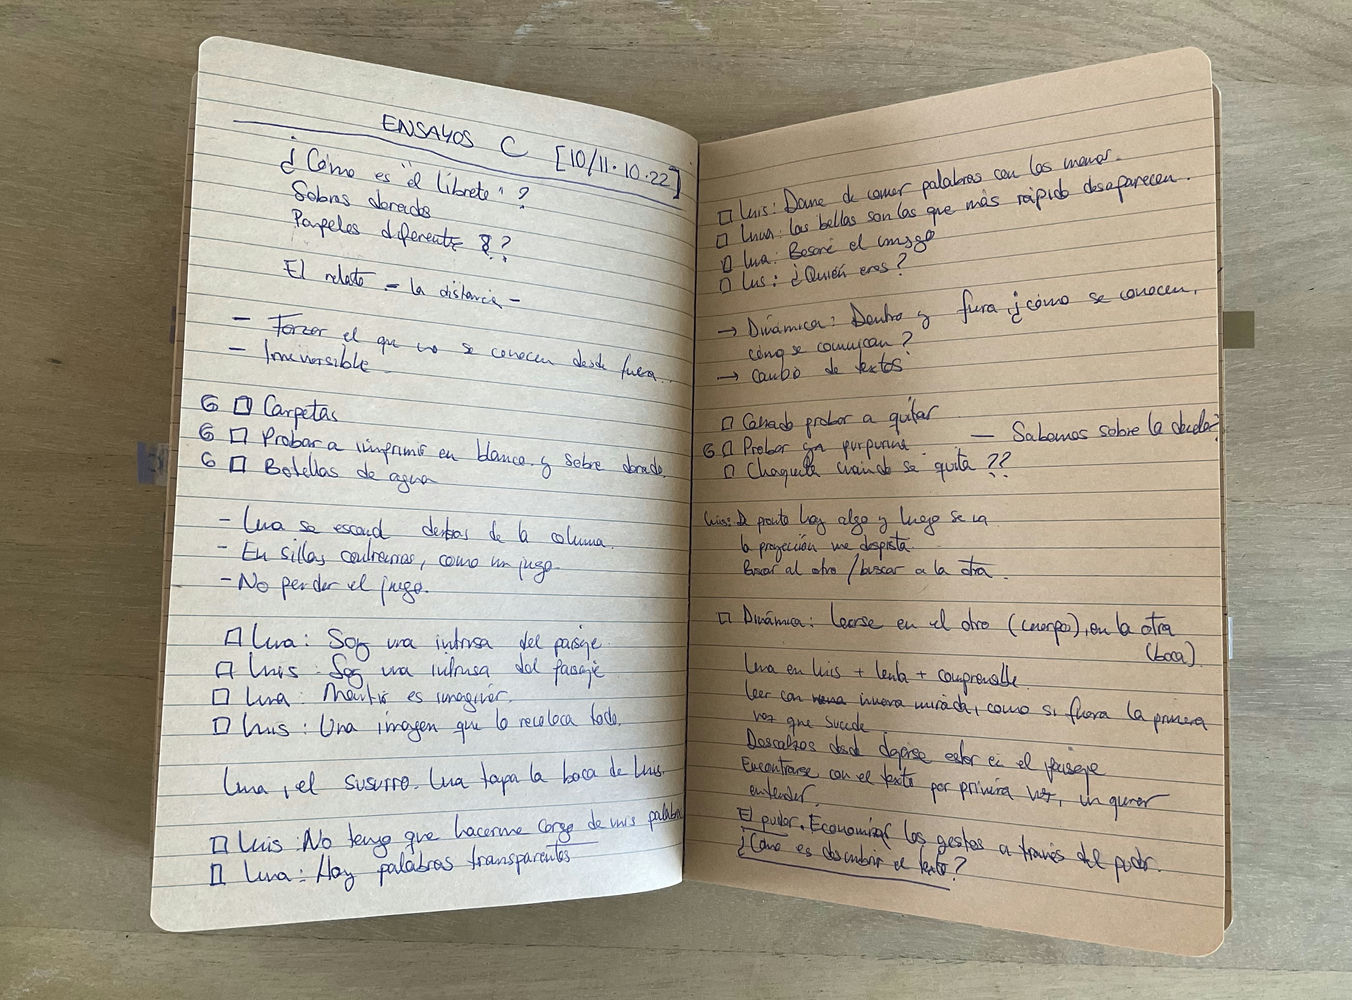 ENSAYOS C [10/11.10.22]
¿Cómo es "el librete"?
Sobres dorados
Papeles diferentes ??
El relato - la distancia -
- Forzar el que no se conocen desde fuera...
- Irreversible
G □ Carpetas
G □ Probar a imprimir en blanco y sobre dorado.
G □ Botellas de agua
- Luna se esconde detrás de la columna.
- En sillas contrarias, como un juego.
- No perder el juego.
□ Luna: Soy una intrusa del paisaje.
□ Luis: Soy una intrusa del paisaje
□ Luna: Mentir es imaginar.
□ Luis: Una imagen que lo recoloca todo.
Luna, el susurro. Luna tapa la boca de Luis.
□ Luis: No tengo que hacerme cargo de mis palabras
□ Luna: Hay palabras transparentes
□ Luis: Dame de comer palabras con las manos.
□ Luna: Las bellas son las que más rápido desaparecen.
□ Luna: Besaré el
□ Luis: ¿Quién eres?
→ Dinámica: Dentro y fuera, ¿cómo se conocen,
cómo se comunican?
→ Cambio de textos
□ Calzado probar a quitar
G □ Probar con purpurina - Sabemos sobre la deuda?
□ Chaqueta cuando se quita ??
Luis: De pronto hay algo y luego se va
la proyección me despista.
Buscar al otro / buscar a la otra.
□ Dinámica: Leerse en el otro (cuerpo), en la otra
(boca)
Luna en Luis + lenta + comprensible.
Leer con nueva mirada, como si fuera la primera
vez que sucede
Descalzos desde dejarse estar en el paisaje
Encontrarse con el texto por primera vez, un querer
entender.
El pudor. Economizar los gestos a través del pudor.
¿Cómo es descubrir el texto?